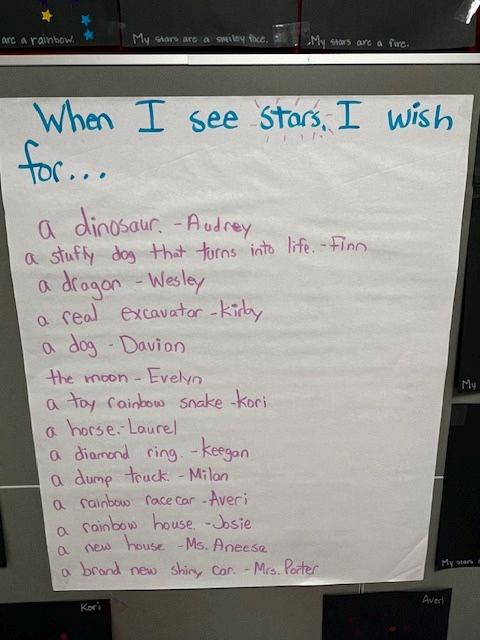 are a rainbow.
My stars are a smiley face.
My stars are a fire.
When I see stars, I wish
for...
a dinosaur. -Audrey
a stuffy dog that turns into life. -Finn
a dragon - Wesley
a real excavator -Kirby
a dog - Davian
the moon - Evelyn
a toy rainbow snake -Kori
a horse. -Laurel
a diamond ring. -Keegan
a dump truck. - Milan
a rainbow race car -Averi
a rainbow house. -Josie
a new house -Ms. Aneesa
a brand new shiny car. - Mrs. Porter
My
My stars
Kori
Averi